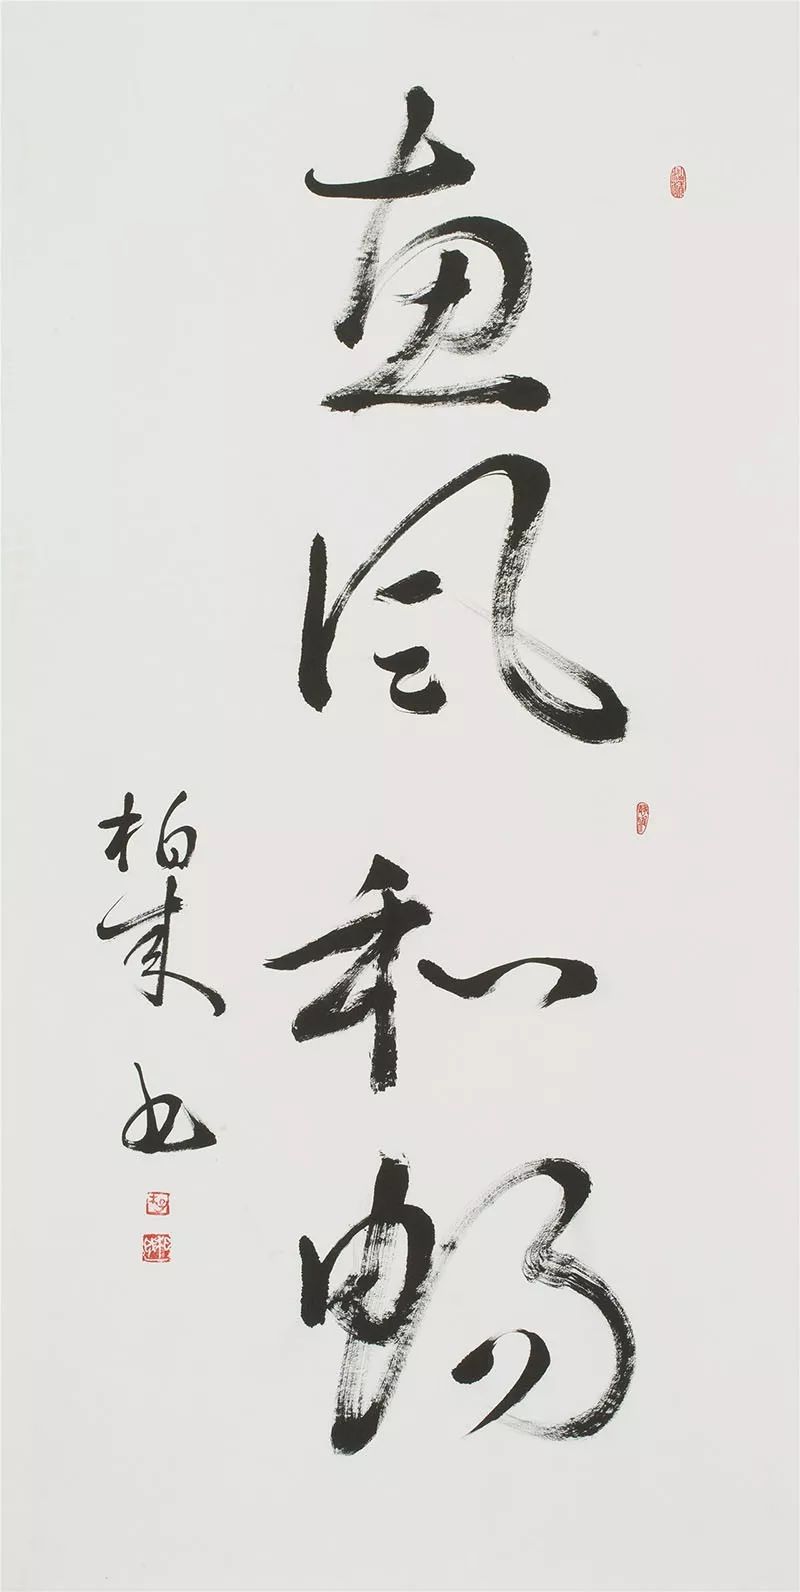 惠风和畅
柏成书